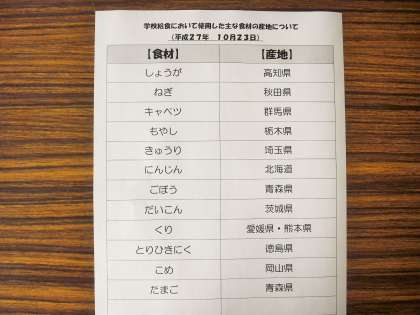 学校給食において使用した主な食材の産地について
（平成２７年　１０月２３日）
【食材】　【産地】
しょうが　高知県
ねぎ　秋田県
キャベツ　群馬県
もやし　栃木県
きゅうり　埼玉県
にんじん　北海道
ごぼう　青森県
だいこん　茨城県
くり　愛媛県・熊本県
とりひきにく　徳島県
こめ　岡山県
たまご　青森県